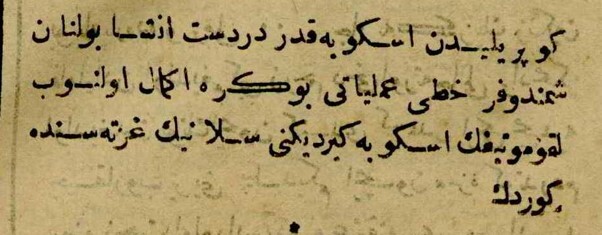 كوپريليدن اسكوبه قدر دردست انشا بولنان
شمندوفر خطى عملياتى بوكره اكمال اولنوب
لقوموتيفك اسكوبه كيرديكنى سلانيك غزته سنده
كوردك